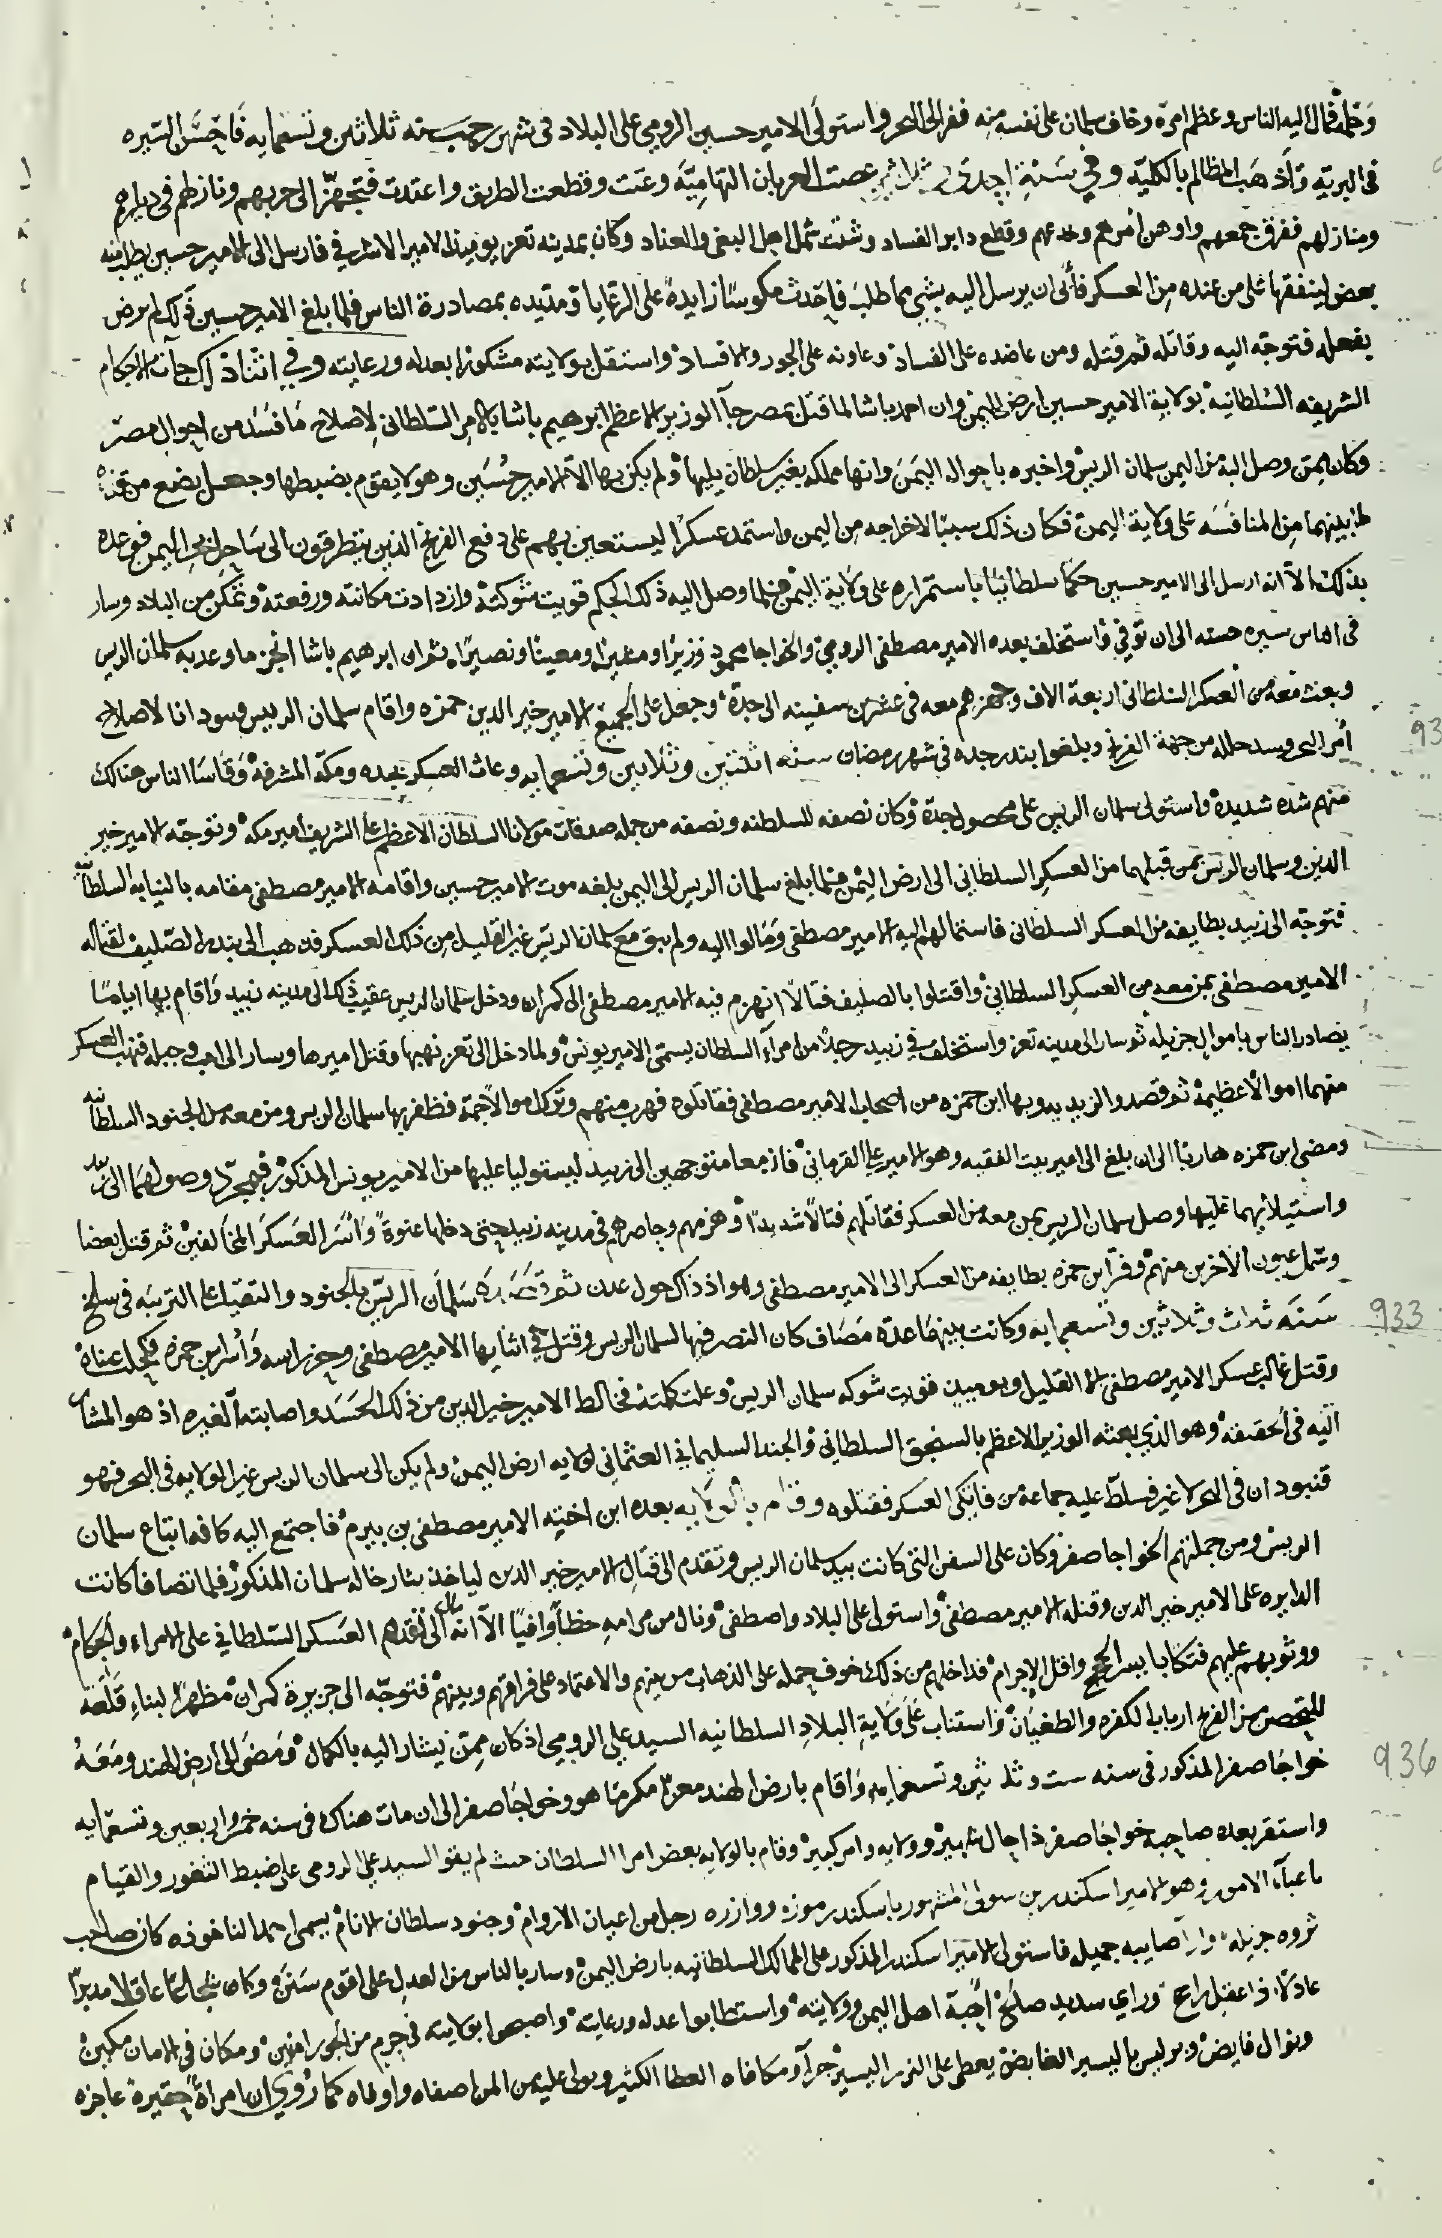 وحمله فمال اليه الناس وعظم امره وخاف سلمان على نفسه منه ففر الى البحر واستولى الامير حسين الرومي على البلاد فى شهر رجب سنه ثلاثين وتسعمايه فاحسن السيره
فى البريه واذهب المظالم بالكليه وفي سنة احدى وثلاثين عصت العربان التهاميه وعتت وقطعت الطريق واعتدت فتجهز الى حربهم ونازلهم فى ديارهم
ومنازلهم ففرق جمعهم واوهن امرهم وقطع دابر الفساد وشتت شمل اهل البغي والعناد وكان بمدينه تعز يوميذ الامير الاشرفي فارسل الى الامير حسين يطلب منه
بعض لينفقها على من عنده من العسكر فأبى ان يرسل اليه بشي مما طلب فاحدث مكوسا زايدة على الرعايا ومد يده بمصادرة الناس فلما بلغ الامير حسين ذلك لم يرض
بفعله فتوجه اليه وقاتله ثم قتله ومن عاضده على الفساد وعاونه على الجور والافساد واستقل بولايته مشكورا بعدله ورعايته وفي اثناء ذلك جاته الاحكام
الشريفه السلطانيه بولاية الامير حسين ارض اليمن وان احمد باشا لما قتل بمصر جآ الوزير الاعظم ابرهيم باشا بالامر السلطانى لاصلاح ما فسد من احوال مصر
وكان ممن وصل اليه من اليمن سلمان الريس واخبره باحوال اليمن وانها مملكه بغير سلطان يليها ولم يكن بها الا الامير حسين وهو لا يقوم بضبطها وجعل يضع من قدره
لما بينهما من المنافسه على ولاية اليمن فكان ذلك سببا لاخراجه من اليمن واستمد عسكرا ليستعين بهم على دفع الفرنج الذين يتطرقون الى ساحل بحر اليمن فوعده
بذلك الا انه ارسل الى الامير حسين حكما سلطانيا باستمراره على ولاية اليمن فلما وصل اليه ذلك الحكم قويت شوكته وازدادت مكانته ورفعته وتمكن من البلاد وسار
فى الناس سيره حسنه الى ان توفي واستخلف بعده الامير مصطفى الرومي والخواجا محمود وزيرا ومشيرا ومعينا ونصيرا ثم ان ابرهيم باشا انجز ما وعد به سلمان الريس
وبعث معه من العسكر السلطانى اربعة الاف وجهزهم معه فى عشرين سفينه الى جدة وجعل على الجميع الامير خير الدين حمزه واقام سلمان الريس قبودانا لاصلاح
أمر البحر وسد خلله من جهة الفرنج وبلغوا بندر جده فى شهر رمضان سنه اثنتين وثلاثين وتسعمايه وعاث العسكر بجده ومكه المشرفه وقاسا الناس هنالك
منهم شده شديدة واستولى سلمان الريس على محصول جدة وكان نصفه للسلطنه ونصفه من جمله صدقات مولانا السلطان الاعظم على الشريف امير مكه وتوجه الامير خير
الدين وسلمان الريس بمن قبلهما من العسكر السلطانى الى ارض اليمن فلما بلغ سلمان الريس الى اليمن بلغه موت الامير حسين واقامة الامير مصطفى مقامه بالنيابه السلطانيه
فتوجه الى زبيد بطايفه من العسكر السلطانى فاستمالهم اليه الامير مصطفى ومالوا اليه ولم يبق مع سلمان الريس غير القليل من ذلك العسكر فذهب الى بندر الصليف لقتاله
الامير مصطفى بمن معه من العسكر السلطاني واقتتلوا بالصليف قتالا انهزم فيه الامير مصطفى الى كمران ودخل سلمان الريس عقيب ذلك الى مدينه زبيد واقام بها اياما
يصادر الناس باموال جزيله ثم سار الى مدينه تعز واستخلف فى زبيد رجلا من امرآء السلطان يسمى الامير يونس ولما دخل الى تعز نهبها وقتل اميرها وسار الى اب وجبله فنهب العسكر
منهما اموالا عظيمة ثم قصد والزيديه وبها ابن حمزه من اصحاب الامير مصطفى فقاتلوه فهرب منهم وترك اموالا جمة فظفر بها سلمان الريس ومن معه من الجنود السلطانيه
ومضى ابن حمزه هاربا الى ان بلغ الى امير بيت الفقيه وهو الامير علي القرماني فاذمعا متوجهين الى زبيد ليستوليا عليها من الامير يونس المذكور فبمجرد وصولهما الى زبيد
واستيلايهما عليها وصل سلمان الريس بمن معه من العسكر فقاتلهم قتالا شديدا وهزمهم وحاصرهم فى مدينه زبيد حتى دخلها عنوة وأسر العسكر المخالفين ثم قتل بعضا
وسمل عيون الاخرين منهم وفر ابن حمزه بطايفه من العسكر الى الامير مصطفى وهو اذ ذاك حول عدن ثم قصده سلمان الريس بالجنود والتقيا على التربيه فى سلخ
سنه ثلاث وثلاثين وتسعمايه وكانت بينهما عدة مصاف كان النصر فيها لسلمان الريس وقتل في اثنايها الامير مصطفى وحز راسه وأسر ابن حمزه فكحلت عيناه
وقتل غالب عسكر الامير مصطفى الا القليل ويوميذ قويت شوكه سلمان الريس وعلت كلمته فخالط الامير خير الدين من ذلك الحسد واصابته الغيره اذ هو المشار
اليه فى الحقيقه وهو الذي بعثه الوزير الاعظم بالسنجق السلطاني والجند السليماني العثماني لولايه ارض اليمن ولم يكن الى سلمان الريس غير الولايه فى البحر فهو
قبودان فى البحر لا غير فسلط عليه جماعة من فاتكى العسكر فقتلوه وقام بالولايه بعده ابن اخته الامير مصطفى بن بيرم فاجتمع اليه كافه اتباع سلمان
الريس ومن جملتهم الخواجا صفر وكان على السفن التى كانت بيد سلمان الريس وتقدم الى قتال الامير خير الدين لياخذ بثار خاله سلمان المذكور فلما تصافا كانت
الدايره على الامير خير الدين وقتله الامير مصطفى واستولى على البلاد واصطفى ونال من مرامه حظا وافيا الا انه مال الى تقدم العسكر السلطانى على الامراء والحكام
ووثوبهم عليهم فتكا بابسر الحج واقل الاجرام فداخلهم من ذلك خوف حمله على الذهاب من بينهم والاعتماد على فراقهم وبينهم فتوجه الى جزيرة كمران مظهرا لبناء قلعه
للتحصن من الفرنج ارباب الكفر والطغيان واستناب على ولاية البلاد السلطانيه السيد علي الرومي اذ كان ممن يشار اليه بالكمال ومضى الى ارض الهند ومعه
خواجا صفر المذكور فى سنه ست وثلاثين وتسعمايه واقام بارض الهند معززا مكرما هو وخواجا صفر الى ان مات هناك فى سنه خمس واربعين وتسعمايه
واستقر بعده صاحبه خواجا صفر ذا حال شهير وولايه وامر كبير وقام بالولايه بعض امرا السلطان حيث لم يقو السيد علي الرومى على ضبط الثغور والقيام
باعبآء الامور وهو الامير اسكندر بن سولى المشهور باسكندر موز ووازره رجل من اعيان الاروام وجنود سلطان الانام يسمى احمد الناخوذه كان صاحب
ثروه جزيله وارآ صايبه جميله فاستولى الامير اسكندر المذكور على الممالك السلطانيه بارض اليمن وسار بالناس من العدل على اقوم سنن وكان شجاعا عاقلا مدبرا
عادلا ذا عقل راجح وراي سديد صالح احبه اهل اليمن وولايته واستطابوا عدله ورعايته واصبحوا بولايته فى حرم من الجور امنين ومكان فى الامان مكين
ونوال فايض وبر ليس باليسير الغايض يعطى على النزر اليسير جزآء ومكافاه العطا الكثير ويولى عليه من المن اصفاه واوفاه كما روي ان امراة حقيرة عاجزه
933
936